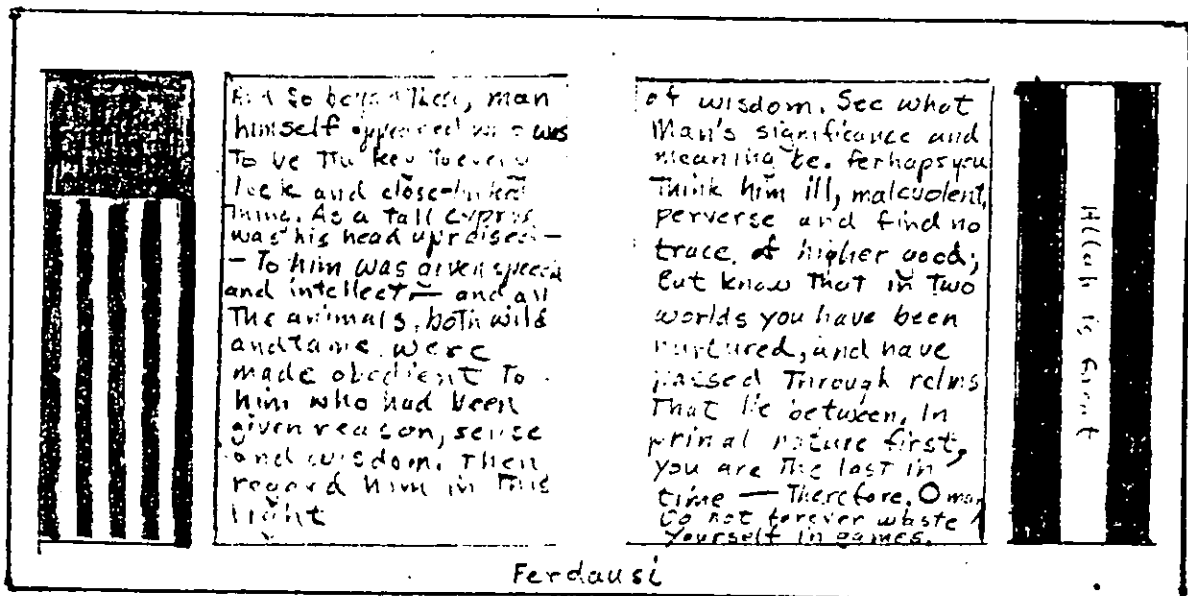 And so beyond these, man
himself appeared who was
To be The key To every
lock and close-linked
Thing. As a Tall cypress
was his head upraised —
— To him was given speech
and intellect — and all
The animals, both wild
and tame were
made obedient To
him who had been
given reason, sense
and wisdom. Then
regard him in This
light
of wisdom. See what
Man's significance and
meaning be. Perhaps you
Think him ill, malevolent,
perverse and find no
trace of higher good;
But know That in Two
worlds you have been
nurtured, and have
passed Through relms
That lie between. In
primal nature first,
you are The last in
time — Therefore, O man
Do not forever waste
yourself in games.
Allah is Great
Ferdausi